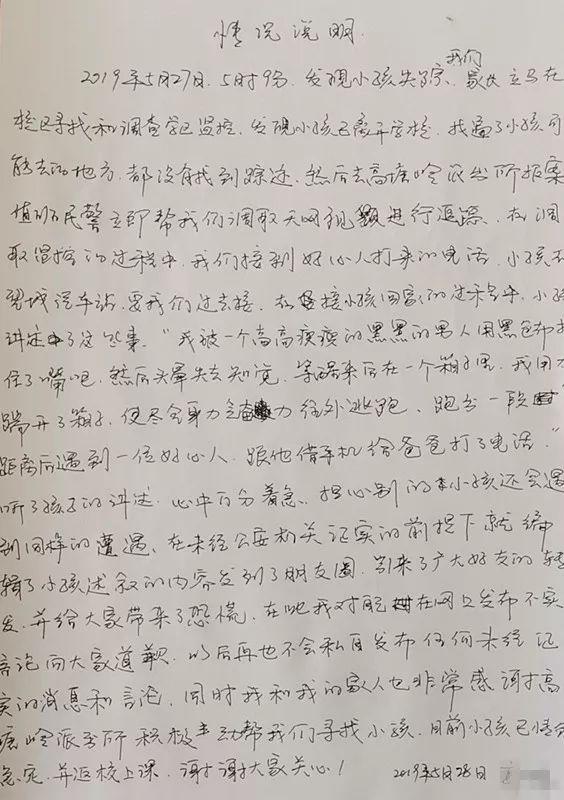 情况说明
2019年5月27日.5时9分.发现小孩失踪.我们家长立马在
校区寻找和调查学区监控.发现小孩已离开学校.找遍了小孩可
能去的地方.都没有找到踪迹.然后去高塘岭派出所报案
值班民警立即帮我们调取天网视频进行追踪.在调
取监控的过程中.我们接到好心人打来的电话.小孩在
望城汽车站.要我们过去接.在接小孩回家的过程中.小孩
讲述了这些事."我被一个高高瘦瘦的黑黑的男人用黑色布捂
住了嘴吧.然后头晕失去知觉.等醒来后在一个箱子里.我用力
踢开了箱子.使尽全身力奋力往外逃跑.跑出一段
距离后遇到一位好心人.跟他借手机给爸爸打了电话."
听了孩子的讲述.心中百分着急.担心别的小孩还会遇
到同样的遭遇.在未经公安机关证实的前提下就编
辑了小孩述叙的内容发到了朋友圈.引来了广大好友的转
发.并给大家带来了恐慌.在此我对在网上发布不实
言论向大家道歉.以后再也不会私自发布任何未经证
实的消息和言论.同时我和我的家人也非常感谢高
塘岭派出所积极主动帮我们寻找小孩.目前小孩已情绪
稳定.并返校上课.谢谢大家关心!
2019年5月28日